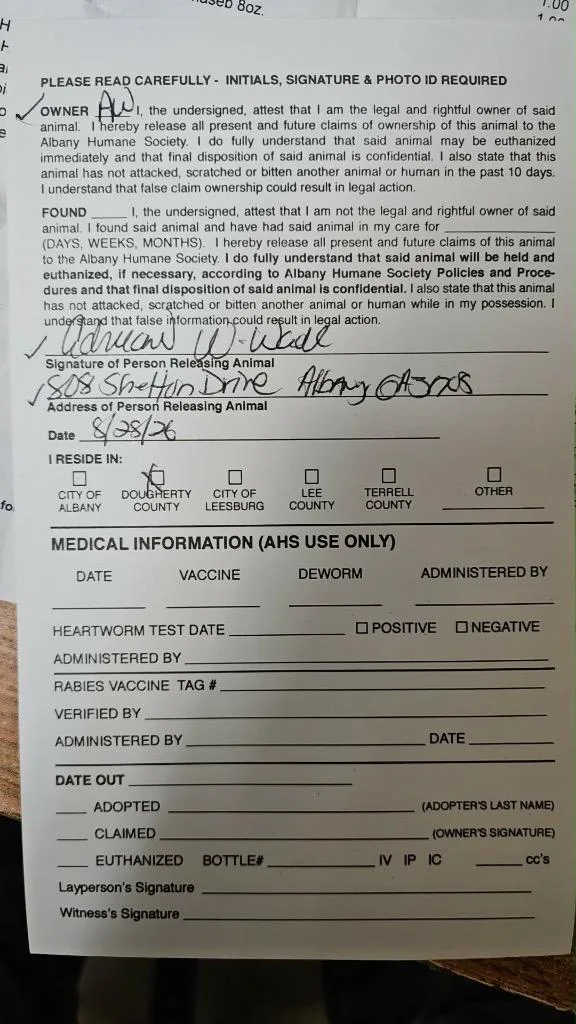 useb 8oz.
1.00
PLEASE READ CAREFULLY - INITIALS, SIGNATURE & PHOTO ID REQUIRED
OWNER AW I, the undersigned, attest that I am the legal and rightful owner of said
animal. I hereby release all present and future claims of ownership of this animal to the
Albany Humane Society. I do fully understand that said animal may be euthanized
immediately and that final disposition of said animal is confidential. I also state that this
animal has not attacked, scratched or bitten another animal or human in the past 10 days.
I understand that false claim ownership could result in legal action.
FOUND _____ I, the undersigned, attest that I am not the legal and rightful owner of said
animal. I found said animal and have had said animal in my care for _______________
(DAYS, WEEKS, MONTHS). I hereby release all present and future claims of this animal
to the Albany Humane Society. I do fully understand that said animal will be held and
euthanized, if necessary, according to Albany Humane Society Policies and Proce-
dures and that final disposition of said animal is confidential. I also state that this animal
has not attacked, scratched or bitten another animal or human while in my possession. I
understand that false information could result in legal action.
W. Wade
Signature of Person Releasing Animal
808 Drive Albany GA
Address of Person Releasing Animal
Date 8/28/26
I RESIDE IN:
CITY OF ALBANY DOUGHERTY COUNTY CITY OF LEESBURG LEE COUNTY TERRELL COUNTY OTHER
MEDICAL INFORMATION (AHS USE ONLY)
DATE VACCINE DEWORM ADMINISTERED BY
HEARTWORM TEST DATE ☐ POSITIVE ☐ NEGATIVE
ADMINISTERED BY
RABIES VACCINE TAG #
VERIFIED BY
ADMINISTERED BY DATE
DATE OUT
ADOPTED (ADOPTER'S LAST NAME)
CLAIMED (OWNER'S SIGNATURE)
EUTHANIZED BOTTLE# IV IP IC cc's
Layperson's Signature
Witness's Signature